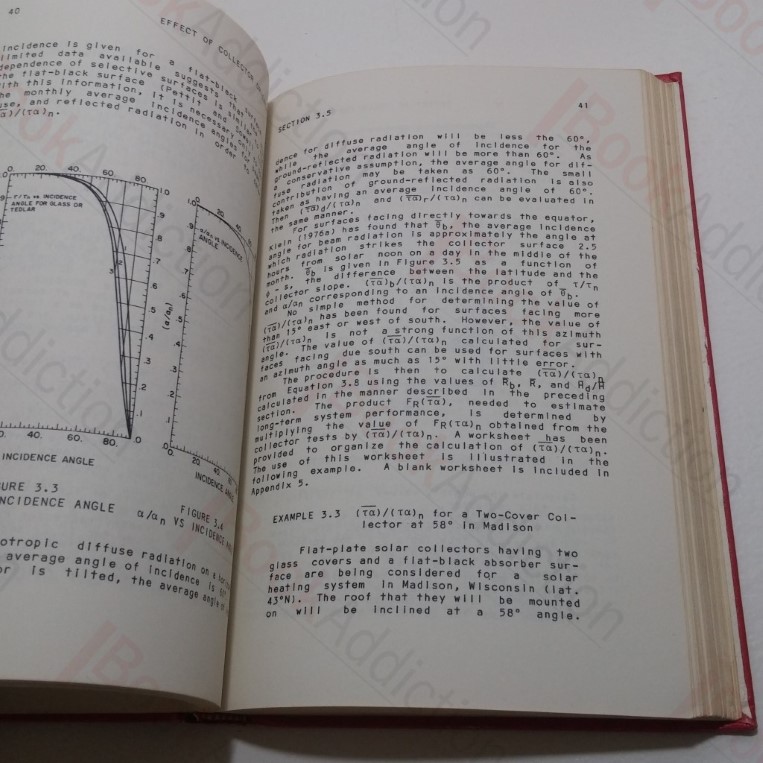 40
EFFECT OF COLLECTOR
incidence is given for a flat-black
limited data available suggests that
dependence of selective surfaces is similar to
the flat-black surface (Pettit
with this information, it is necessary
the monthly average incidence angles for
use, and reflected radiation in order to
0. 20. 40. 60. 80.
τ/τn vs INCIDENCE
ANGLE FOR GLASS OR
TEDLAR
1.0
.9
.8
.7
.6
.5
.4
.3
.2
.1
0
40. 60. 80.
INCIDENCE ANGLE
1.0
α/αn vs INCIDENCE
ANGLE
(α/αn)
0. 20. 40.
INCIDENCE ANGLE
3.3
INCIDENCE ANGLE
FIGURE 3.4
α/αn VS INCIDENCE
diffuse radiation on a
average angle of incidence is 60°
is tilted, the average angle of
SECTION 3.5
41
dence for diffuse radiation will be less the 60°,
while the average angle of incidence for the
ground-reflected radiation will be more than 60°. As
a conservative assumption, the average angle for dif-
fuse radiation may be taken as 60°. The small
contribution of ground-reflected radiation is also
taken as having an average incidence angle of 60°.
Then (τα)d/(τα)n and (τα)r/(τα)n can be evaluated in
the same manner.
For surfaces facing directly towards the equator,
Klein (1976a) has found that θ̄b, the average incidence
angle for beam radiation is approximately the angle at
which radiation strikes the collector surface 2.5
hours from solar noon on a day in the middle of the
month. θ̄b is given in Figure 3.5 as a function of
φ - s, the difference between the latitude and the
collector slope. (τα)b/(τα)n is the product of τ/τn
and α/αn corresponding to an incidence angle of θ̄b.
No simple method for determining the value of
(τα)/(τα)n has been found for surfaces facing more
than 15° east or west of south. However, the value of
(τα)/(τα)n is not a strong function of this azimuth
angle. The value of (τα)/(τα)n calculated for sur-
faces facing due south can be used for surfaces with
an azimuth angle as much as 15° with little error.
The procedure is then to calculate (τα)/(τα)n
from Equation 3.8 using the values of R̄b, R̄, and H̄d/H̄
calculated in the manner described in the preceding
section. The product FR(τα), needed to estimate
long-term system performance, is determined by
multiplying the value of FR(τα)n obtained from the
collector tests by (τα)/(τα)n. A worksheet has been
provided to organize the calculation of (τα)/(τα)n.
The use of this worksheet is illustrated in the
following example. A blank worksheet is included in
Appendix 5.
EXAMPLE 3.3 (τα)/(τα)n for a Two-Cover Col-
lector at 58° in Madison
Flat-plate solar collectors having two
glass covers and a flat-black absorber sur-
face are being considered for a solar
heating system in Madison, Wisconsin (lat.
43°N). The roof that they will be mounted
on will be inclined at a 58° angle.
BookAddiction